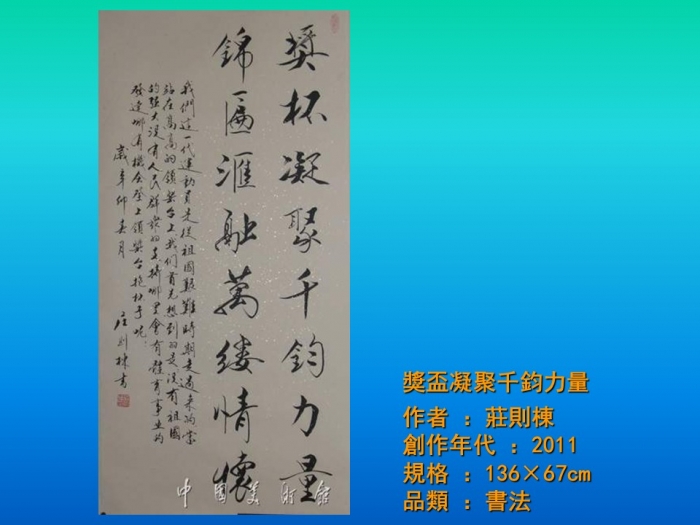 獎杯凝聚千鈞力量
錦匾滙融萬缕情懷
我們這一代運動員是從祖國艱難時期走過来的當
站在高高的領奖台上我們首先想到的是没有祖國
的强大没有人民群衆的支持哪里會有體育事业的
發達哪有機会登上領奖台抱杯子呢
歲辛卯春月
庄则栋書
中国美術館
獎盃凝聚千鈞力量
作者 : 莊則棟
創作年代 : 2011
規格 : 136×67cm
品類 : 書法